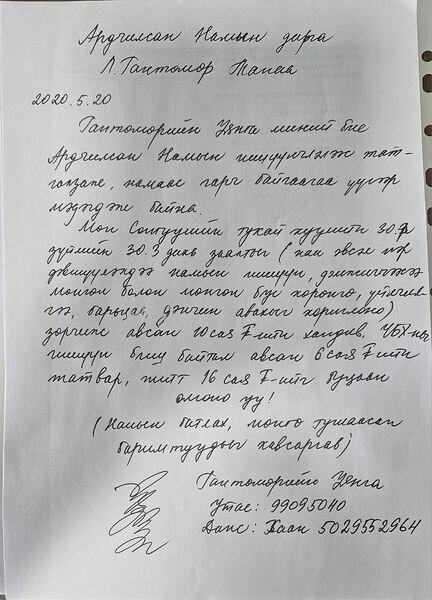 Ардчилсан Намын дарга
Л.Гантөмөр Танаа
2020.5.20
Гантөмөрийн Уянга миний бие
Ардчилсан Намын гишүүнчлэлээс тат-
галзаж, намаас гарч байгаагаа үүгээр
мэдэгдэж байна.
Мөн Сонгуулийн тухай хуулийн 30-р
зүйлийн 30.3 дахь заалтыг (нам эвсэл нэр
дэвшүүлэхдээ намын гишүүн, дэмжигчээс
мөнгөн болон мөнгөн бус хөрөнгө, үйлчил-
гээ, барьцаа, дэнчин авахыг хориглоно)
зөрчиж авсан 10 сая ₮-ийн хандив, ҮБХ-ны
гишүүн биш байтал авсан 6 сая ₮-ийн
татвар, нийт 16 сая ₮-ийг буцаан
олгоно уу!
(Намын батлах, мөнгө тушаасан
баримтуудыг хавсаргав)
Гантөмөрийн Уянга
Утас: 99095040
Данс: Хаан 5029552964